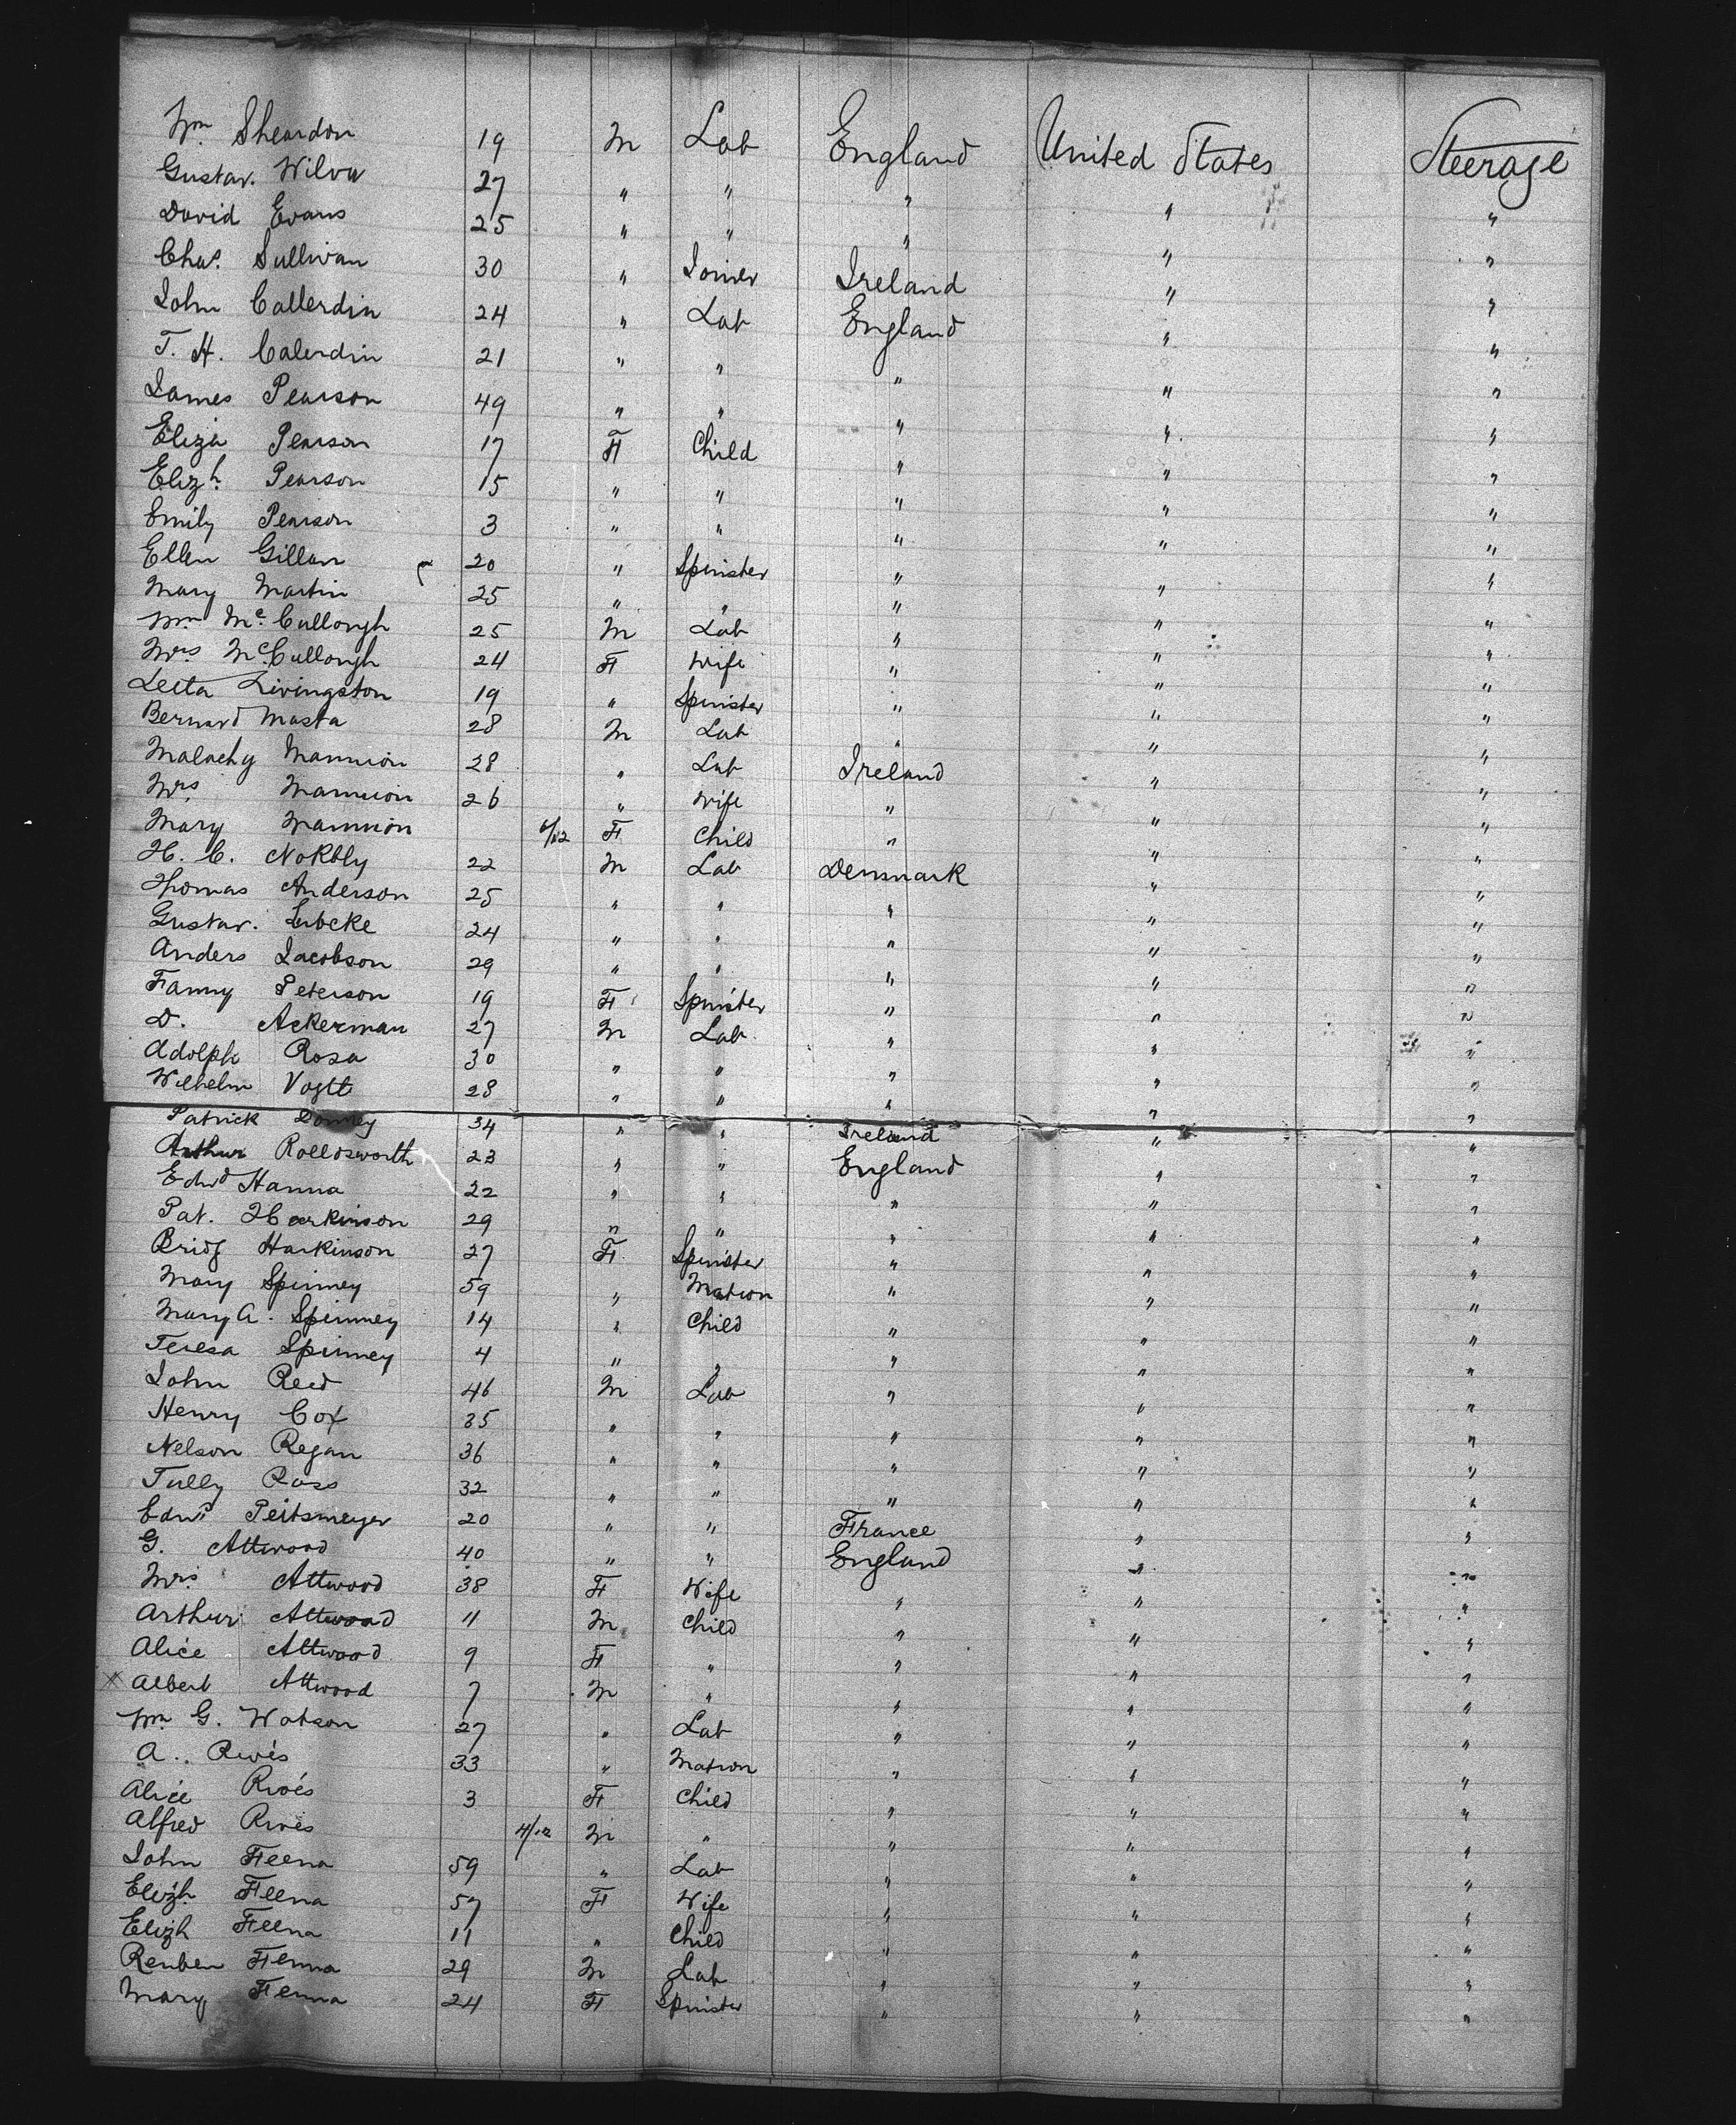 Wm Sheardon 19 M Lab England United States Steerage
Gustav. Wilva 27 " " " " "
David Evans 25 " " " " "
Chas. Sullivan 30 " Joiner Ireland " "
John Callerdin 24 " Lab England " "
T. H. Calerdin 21 " " " " "
James Pearson 49 " " " " "
Eliza Pearson 17 F Child " " "
Elizh. Pearson 15 " " " " "
Emily Pearson 3 " " " " "
Ellen Gillan 20 " Spinster " " "
Mary Martin 25 " " " " "
Wm McCullough 25 M Lab " " "
Mrs McCullough 24 F Wife " " "
Leita Livingston 19 " Spinster " " "
Bernard Masta 28 M Lab " " "
Malachy Mannion 28 " Lab Ireland " "
Mrs Mannion 26 " Wife " " "
Mary Mannion 6/12 F Child " " "
H. C. Nokbly 22 M Lab Denmark " "
Thomas Anderson 25 " " " " "
Gustav. Lubcke 24 " " " " "
Anders Jacobson 29 " " " " "
Fanny Peterson 19 F Spinster " " "
D. Ackerman 27 M Lab " " "
Adolph Rosa 30 " " " " "
Wilhelm Vogtt 28 " " " " "
Patrick 34 " " Ireland " "
Arthur Rolldsworth 23 " " England " "
Edwd Hanna 22 " " " " "
Pat. Harkinson 29 " " " " "
Bridg Harkinson 27 F Spinster " " "
Mary Spinney 59 " Matron " " "
Mary A. Spinney 14 " Child " " "
Teresa Spinney 4 " " " " "
John Reed 46 M Lab " " "
Henry Cox 35 " " " " "
Nelson Regan 36 " " " " "
Tully Ross 32 " " " " "
Edwd Peitsmeyer 20 " " France " "
G. Attwood 40 " " England " "
Mrs Attwood 38 F Wife " " "
Arthur Attwood 11 M Child " " "
Alice Attwood 9 F " " " "
X Albert Attwood 7 M " " " "
Wm G. Watson 27 " Lab " " "
A. Rivés 33 " Matron " " "
Alice Rivés 3 F Child " " "
Alfred Rivés 4/12 M " " " "
John Feena 59 " Lab " " "
Elizh. Feena 57 F Wife " " "
Elizh Feena 11 " Child " " "
Reuben Fenna 29 M Lab " " "
Mary Fenna 24 F Spinster " " "